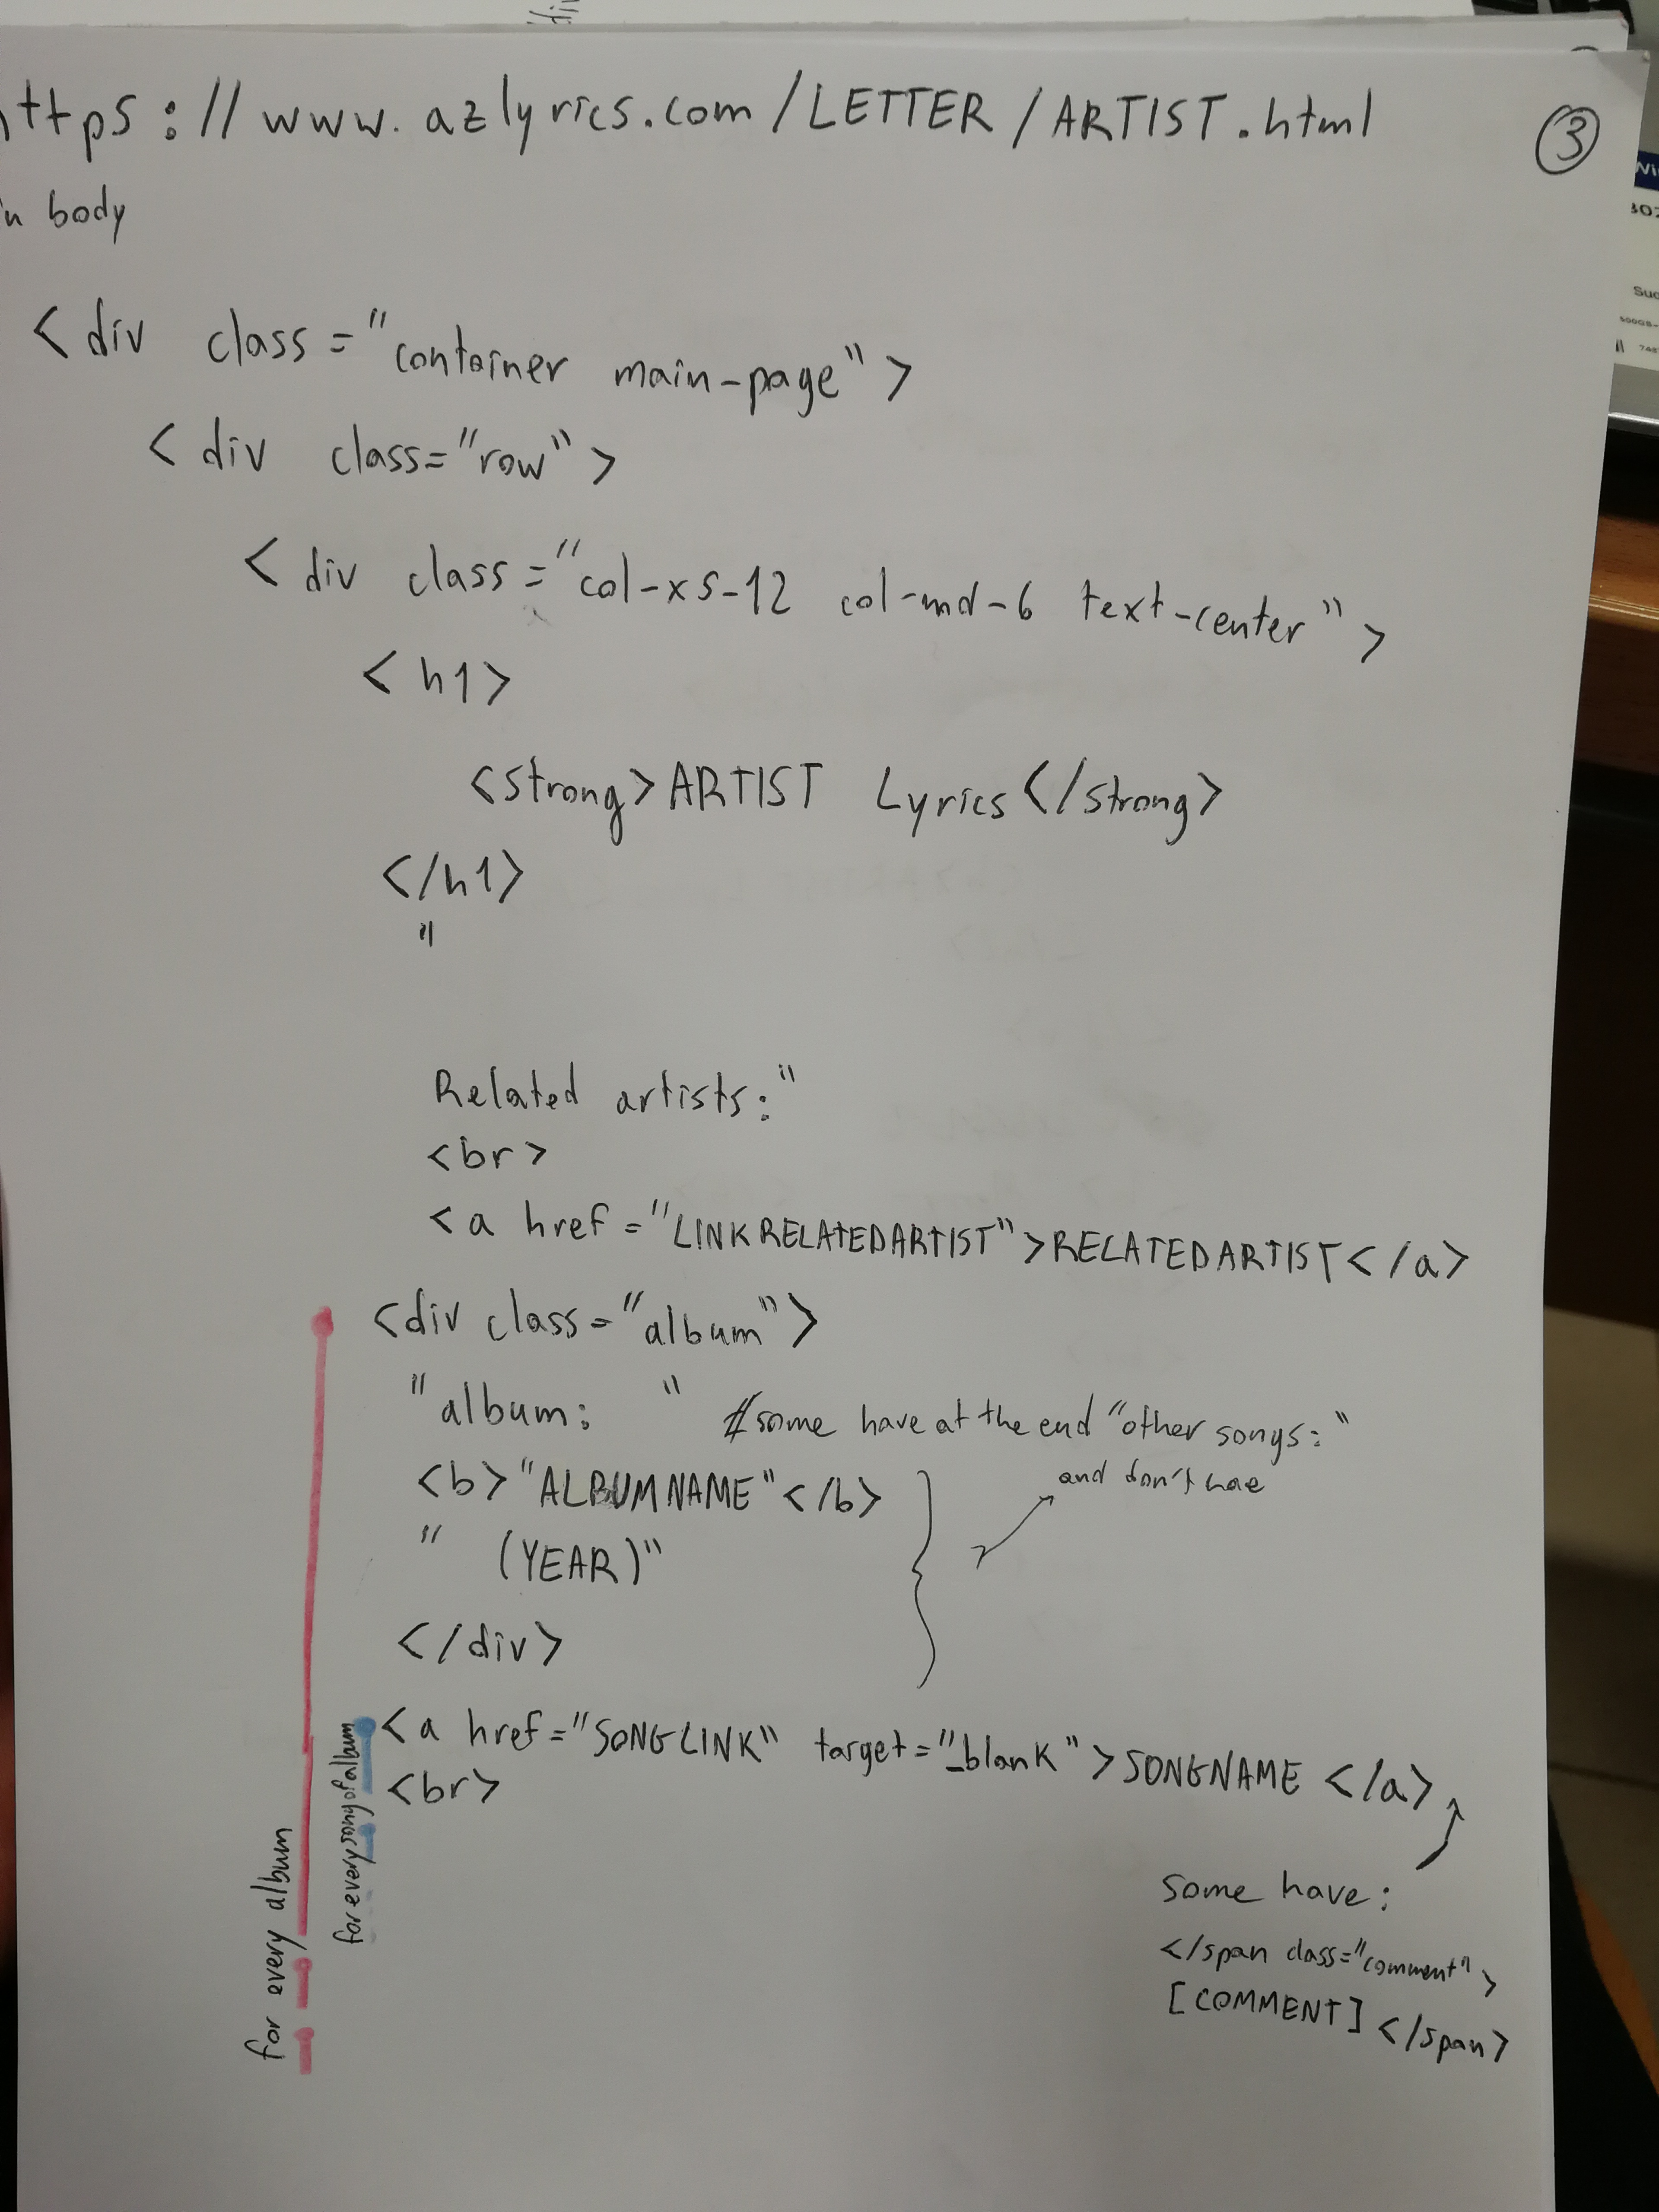 https://www.azlyrics.com/LETTER/ARTIST.html
3
in body
<div class="container main-page">
<div class="row">
<div class="col-xs-12 col-md-6 text-center">
<h1>
<strong>ARTIST Lyrics</strong>
</h1>
"
Related artists:"
<br>
<a href="LINKRELATEDARTIST">RELATEDARTIST</a>
<div class="album">
"album: " #some have at the end "other songs:"
and don't hae
<b>"ALBUMNAME"</b>
" (YEAR)"
</div>
<a href="SONGLINK" target="_blank">SONGNAME </a>
<br>
for every song of album
for every album
some have:
</span class="comment">
[COMMENT]</span>